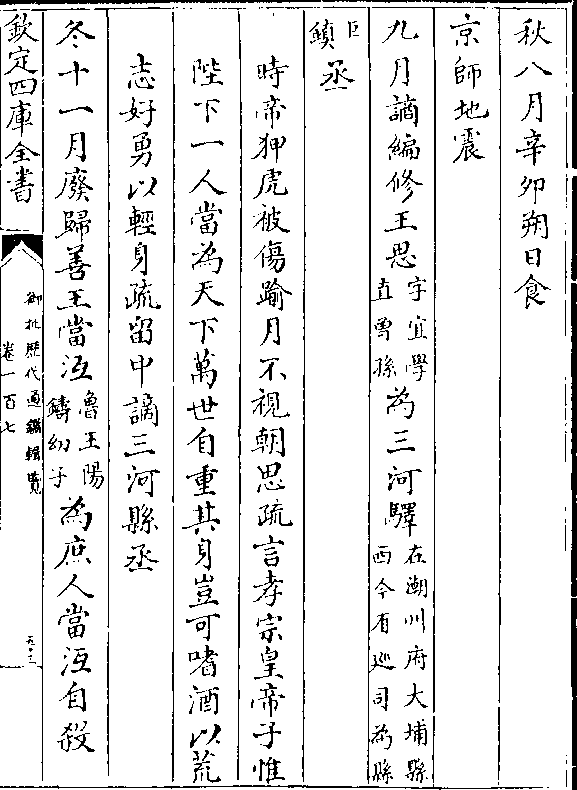 秋八月辛卯朔日食
京師地震
九月謫編修王思字宜學直曾孫為三河驛在潮州府大埔縣西今有巡司為縣
巨鎮丞
時帝狎虎被傷踰月不視朝思疏言孝宗皇帝子惟
陛下一人當為天下萬世自重其身豈可嗜酒以荒
志好勇以輕身疏留中謫三河縣丞
冬十一月廢歸善王當沍魯王陽鑄幼子為庶人當沍自殺
欽定四庫全書
御批歷代通鑑輯覽
卷一百七
五十三